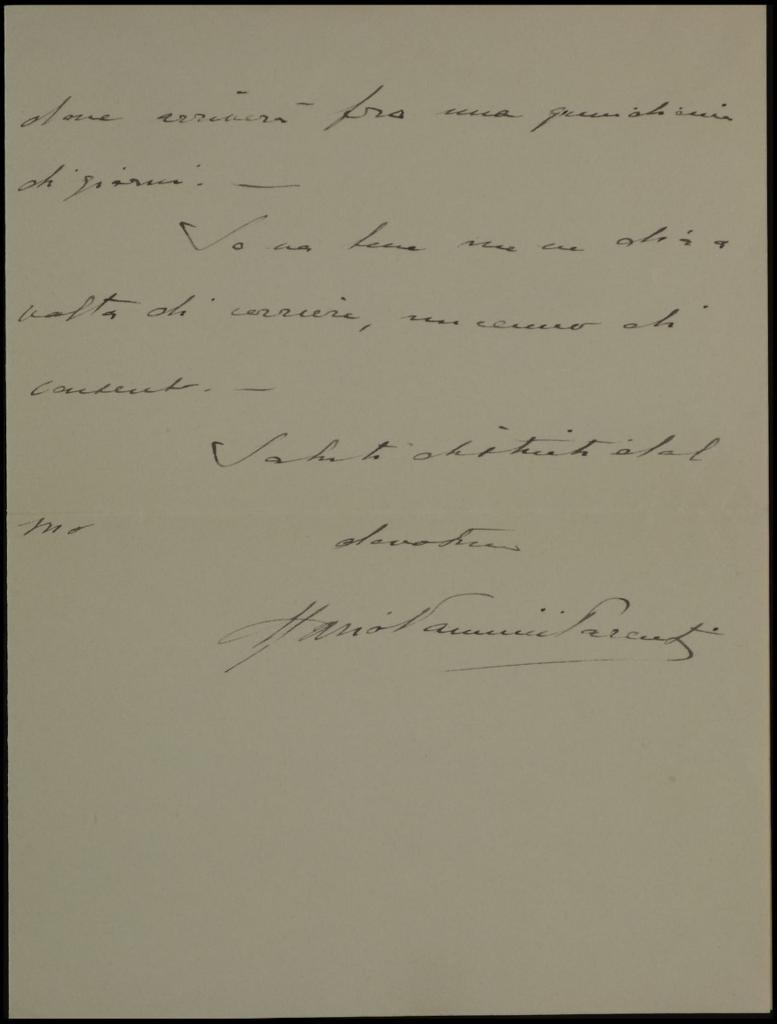 dove arriverà fra una quindicina
di giorni. —
Se va bene me ne dia a
volta di corriere, un cenno di
consenso. —
Saluti distinti dal
suo devotmo
Mario Vannini Parenti